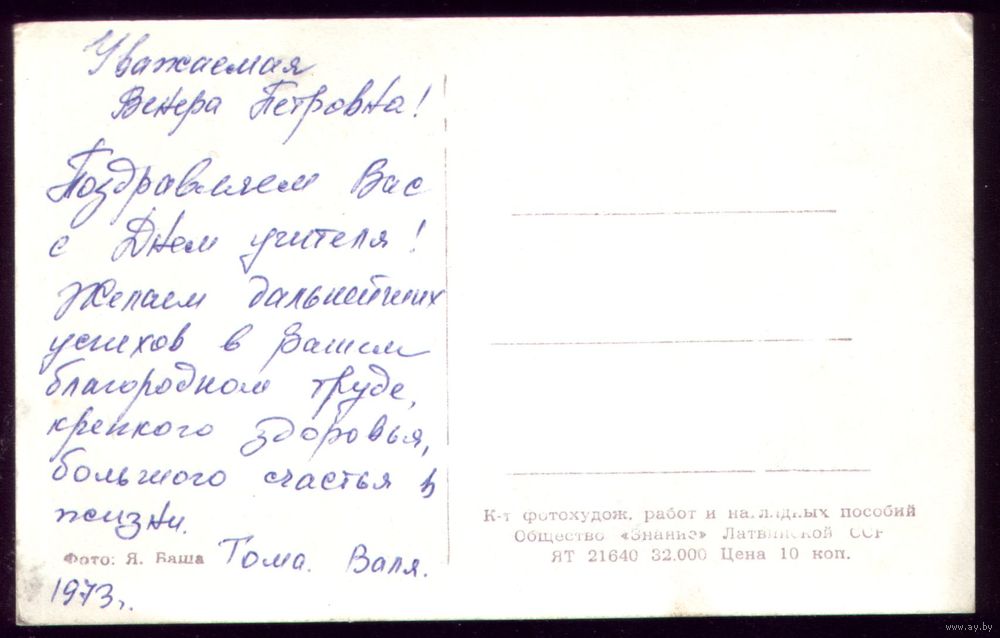 Уважаемая
Венера Петровна!
Поздравляем Вас
с Днем учителя!
Желаем дальнейших
успехов в Вашем
благородном труде,
крепкого здоровья,
большого счастья в
жизни.
Тома. Валя.
1973г.
Фото: Я. Баша
К-т фотохудож. работ и наглядных пособий
Общество «Знание» Латвийской ССР
ЯТ 21640 32.000 Цена 10 коп.
www.ay.by